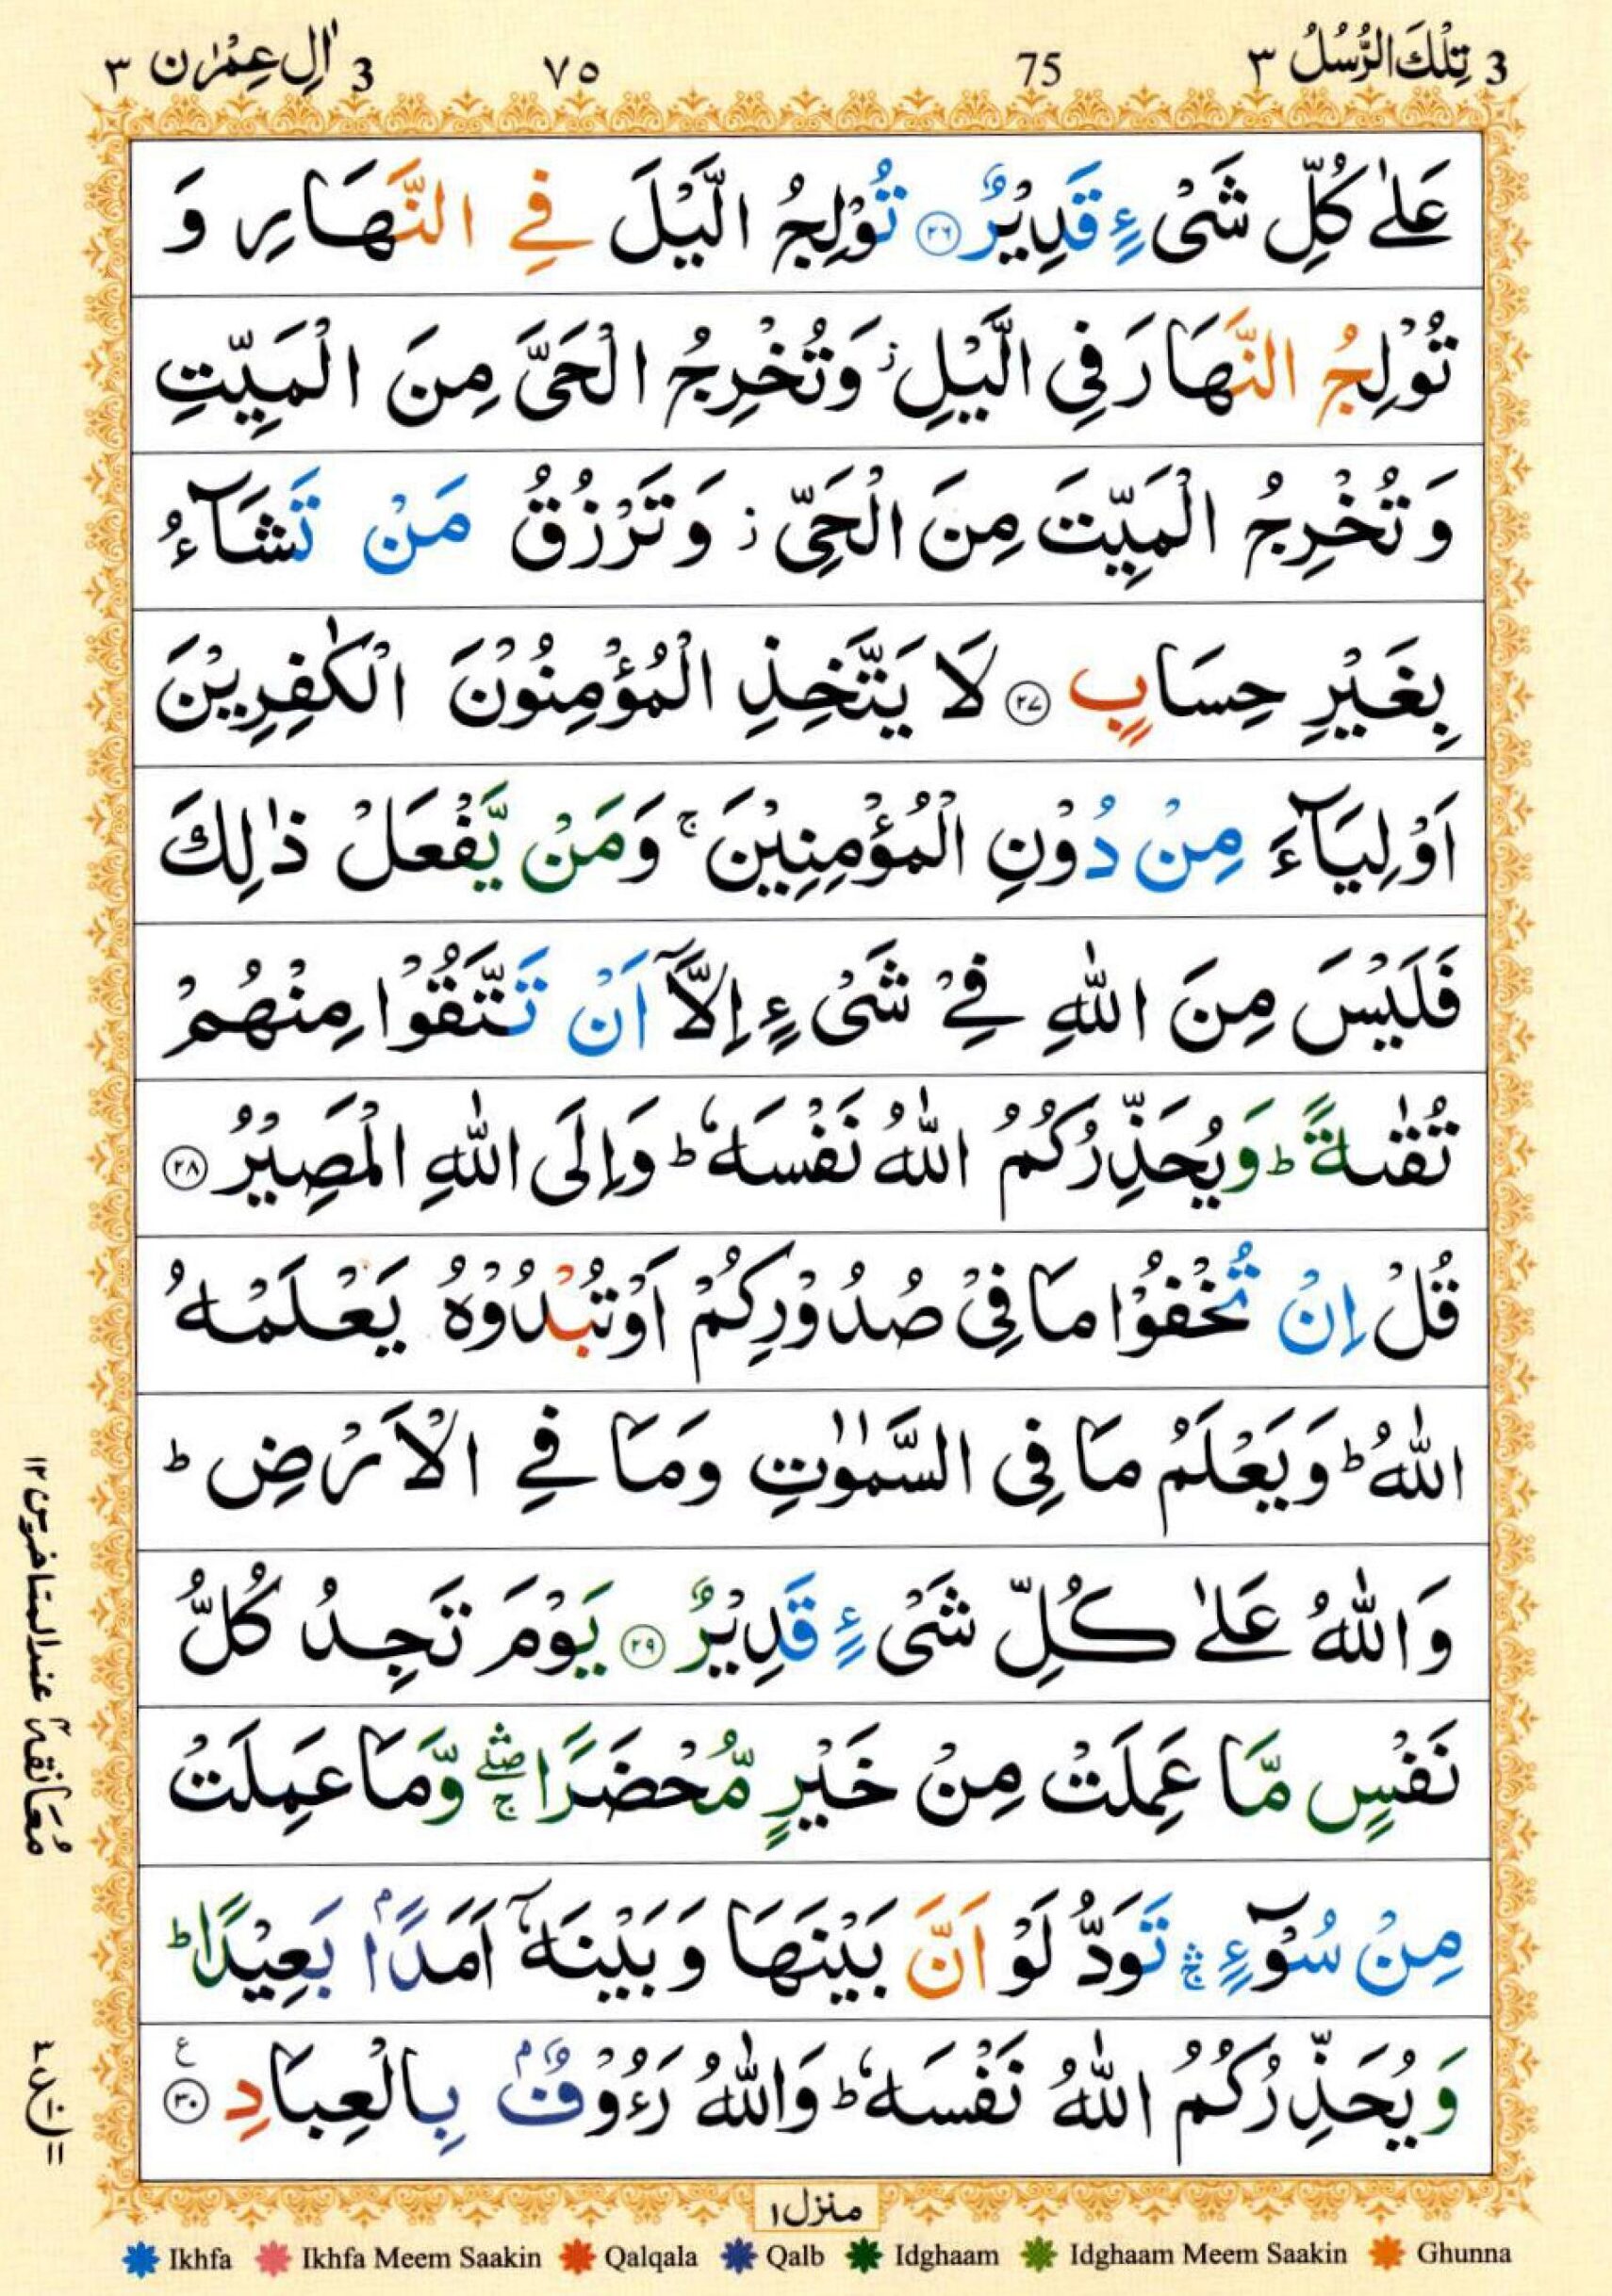 3 تِلْكَ الرُّسُلُ ٣ 75 ٧٥ 3 اٰلِ عِمْرٰن ٣
عَلٰى كُلِّ شَىْءٍ قَدِيْرٌ ۝٢٦ تُوْلِجُ الَّيْلَ فِى النَّهَارِ وَ
تُوْلِجُ النَّهَارَ فِى الَّيْلِ ز وَتُخْرِجُ الْحَىَّ مِنَ الْمَيِّتِ
وَتُخْرِجُ الْمَيِّتَ مِنَ الْحَىِّ ز وَتَرْزُقُ مَنْ تَشَآءُ
بِغَيْرِ حِسَابٍ ۝٢٧ لَا يَتَّخِذِ الْمُؤْمِنُوْنَ الْكٰفِرِيْنَ
اَوْلِيَآءَ مِنْ دُوْنِ الْمُؤْمِنِيْنَ ۚ وَمَنْ يَّفْعَلْ ذٰلِكَ
فَلَيْسَ مِنَ اللّٰهِ فِىْ شَىْءٍ اِلَّآ اَنْ تَتَّقُوْا مِنْهُمْ
تُقٰىةً ؕ وَيُحَذِّرُكُمُ اللّٰهُ نَفْسَهٗ ؕ وَاِلَى اللّٰهِ الْمَصِيْرُ ۝٢٨
قُلْ اِنْ تُخْفُوْا مَا فِىْ صُدُوْرِكُمْ اَوْ تُبْدُوْهُ يَعْلَمْهُ
اللّٰهُ ؕ وَيَعْلَمُ مَا فِى السَّمٰوٰتِ وَمَا فِى الْاَرْضِ ؕ
وَاللّٰهُ عَلٰى كُلِّ شَىْءٍ قَدِيْرٌ ۝٢٩ يَوْمَ تَجِدُ كُلُّ
نَفْسٍ مَّا عَمِلَتْ مِنْ خَيْرٍ مُّحْضَرًا ۖۛۚ وَّمَا عَمِلَتْ
مِنْ سُوْٓءٍ ۛۚ تَوَدُّ لَوْ اَنَّ بَيْنَهَا وَبَيْنَهٗٓ اَمَدًۢا بَعِيْدًا ؕ
وَيُحَذِّرُكُمُ اللّٰهُ نَفْسَهٗ ؕ وَاللّٰهُ رَءُوْفٌۢ بِالْعِبَادِ ۝٣٠ ع
معانقة ٢ عند المتاخرين ١٢
منزل ١
Ikhfa Ikhfa Meem Saakin Qalqala Qalb Idghaam Idghaam Meem Saakin Ghunna